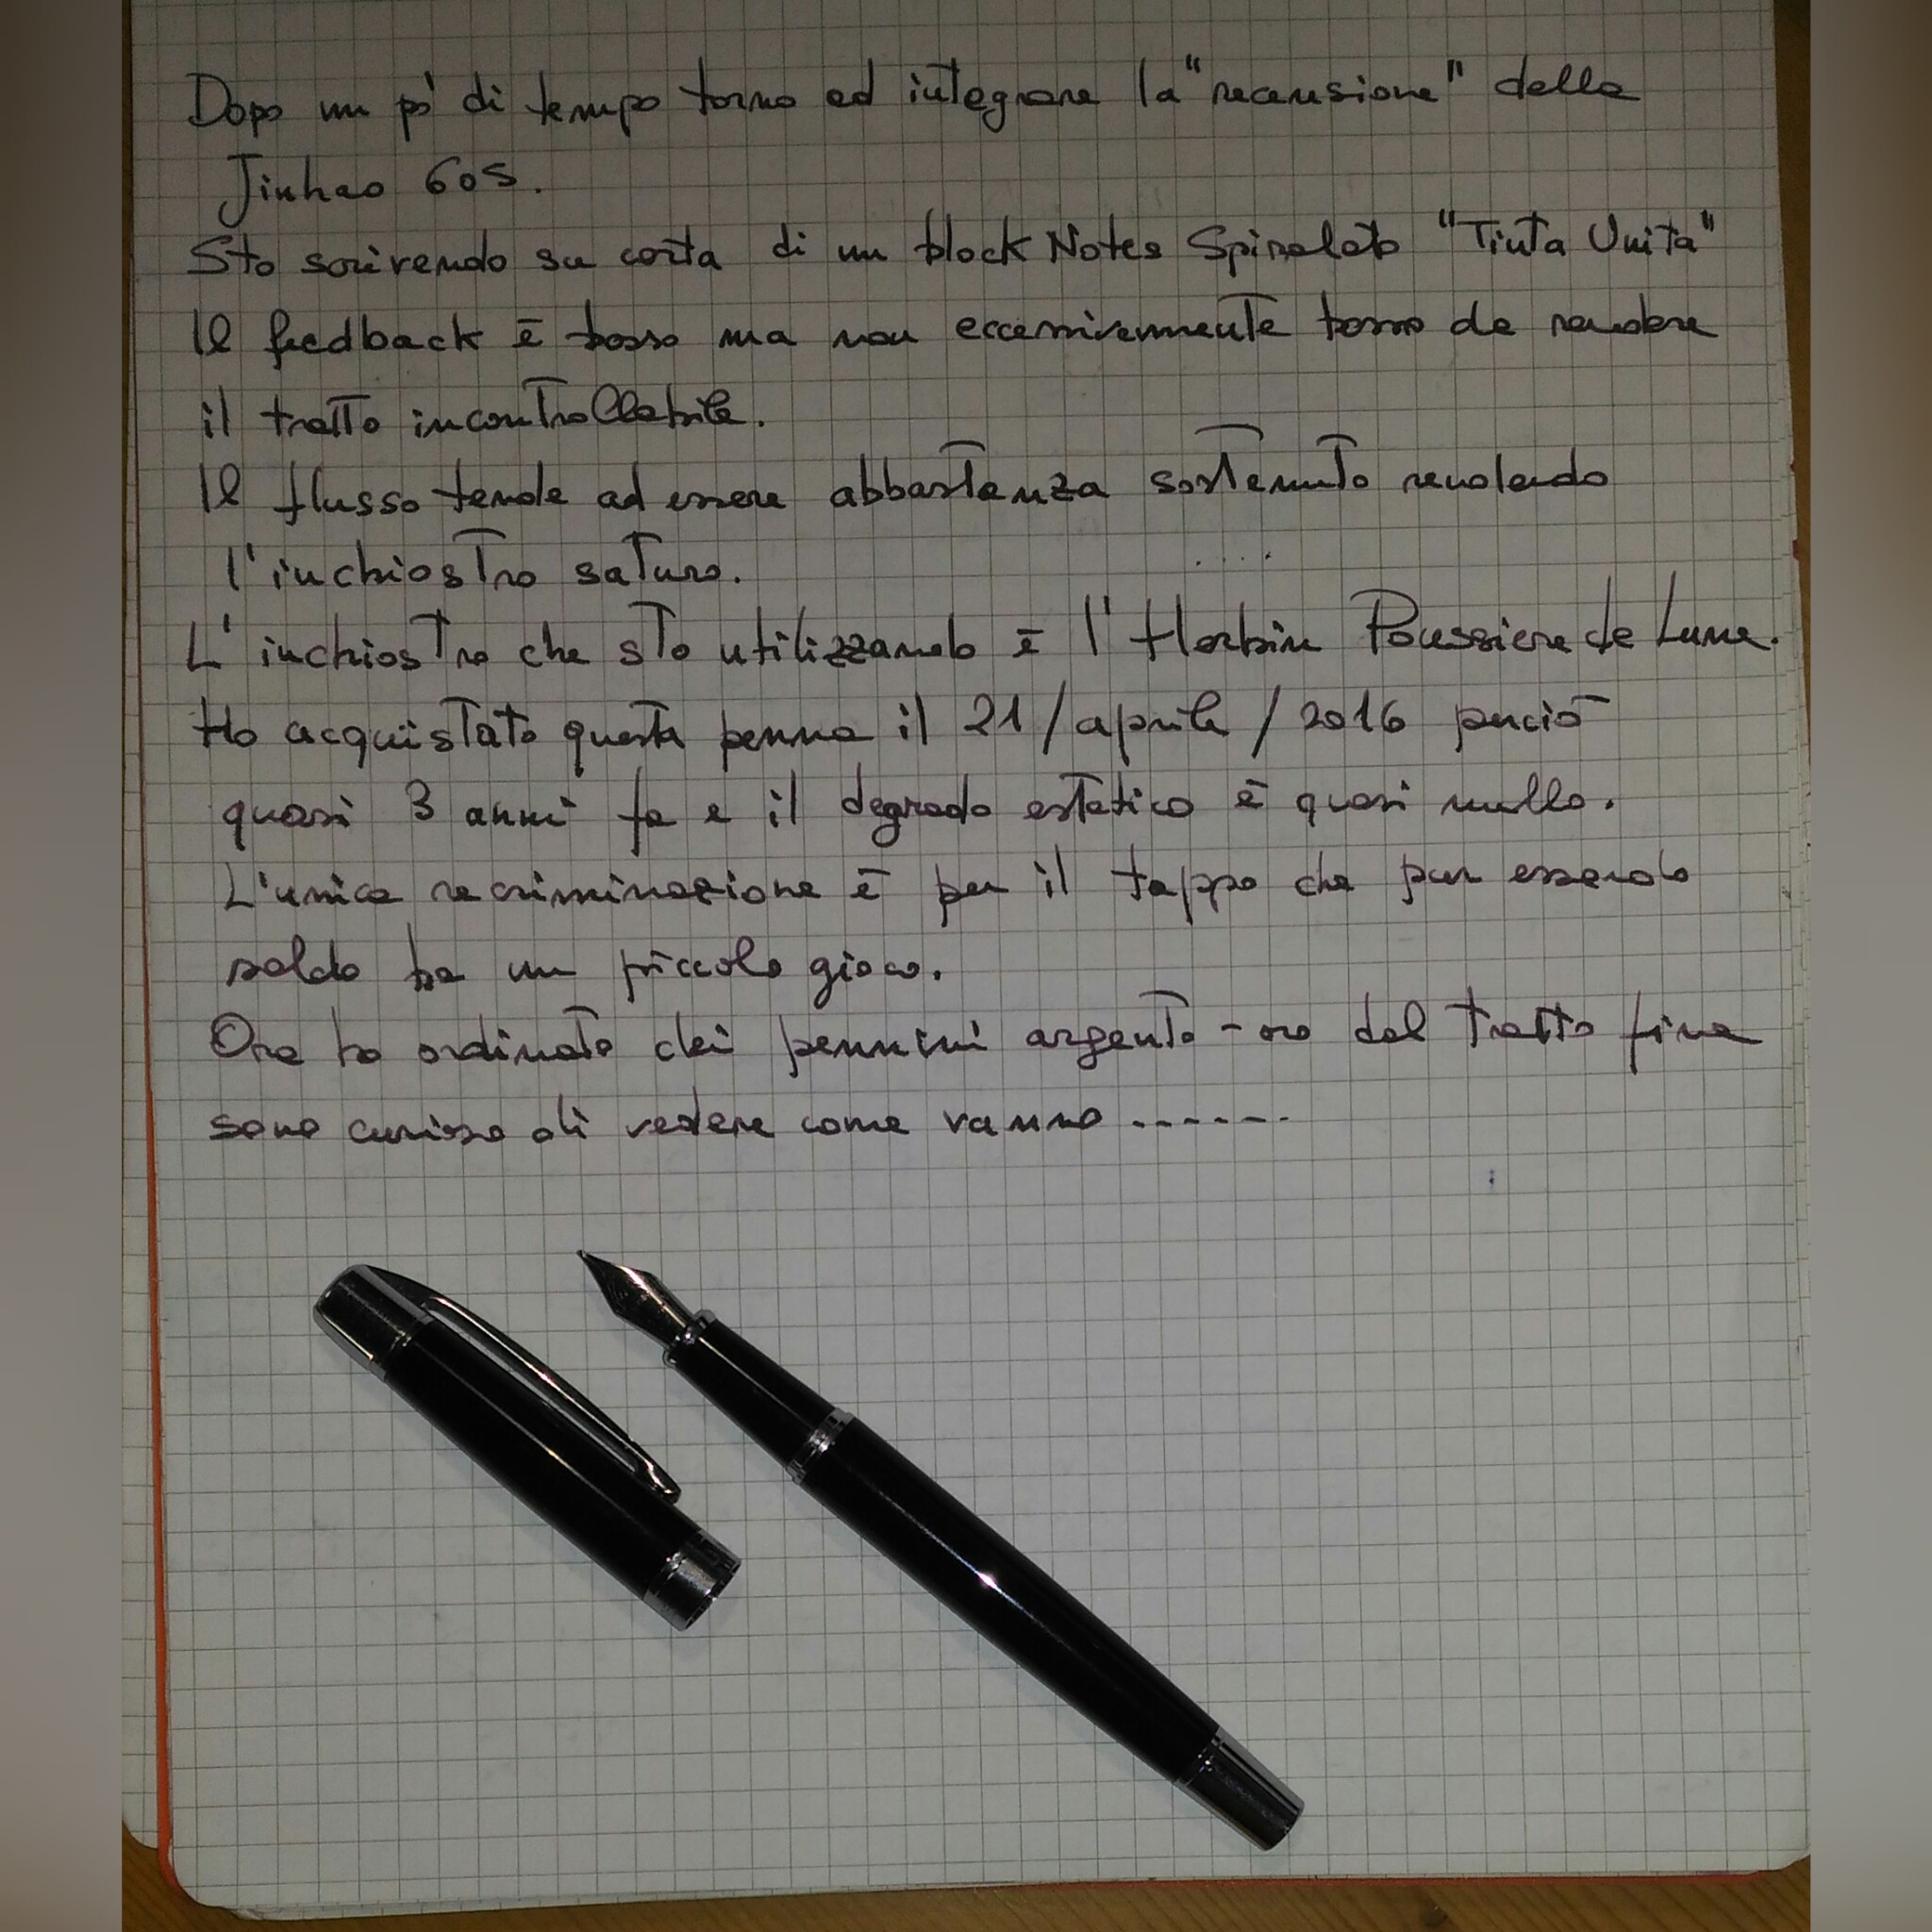 Dopo un pò di tempo torno ad integrare la "recensione" della
Jinhao 605.
Sto scrivendo su carta di un block Notes Spiralato "Tinta Unita"
Il feedback è basso ma non eccessivamente basso da rendere
il tratto incontrollabile.
Il flusso tende ad essere abbastanza sostenuto rendendo
l'inchiostro saturo.
L'inchiostro che sto utilizzando è l'Herbin Poussiere de Lune.
Ho acquistato questa penna il 21/aprile/2016 perciò
quasi 3 anni fa e il degrado estetico è quasi nullo.
L'unica recriminazione è per il tappo che pur essendo
saldo ha un piccolo gioco.
Ora ho ordinato dei pennini argento-oro dal tratto fine
sono curioso di vedere come vanno .......